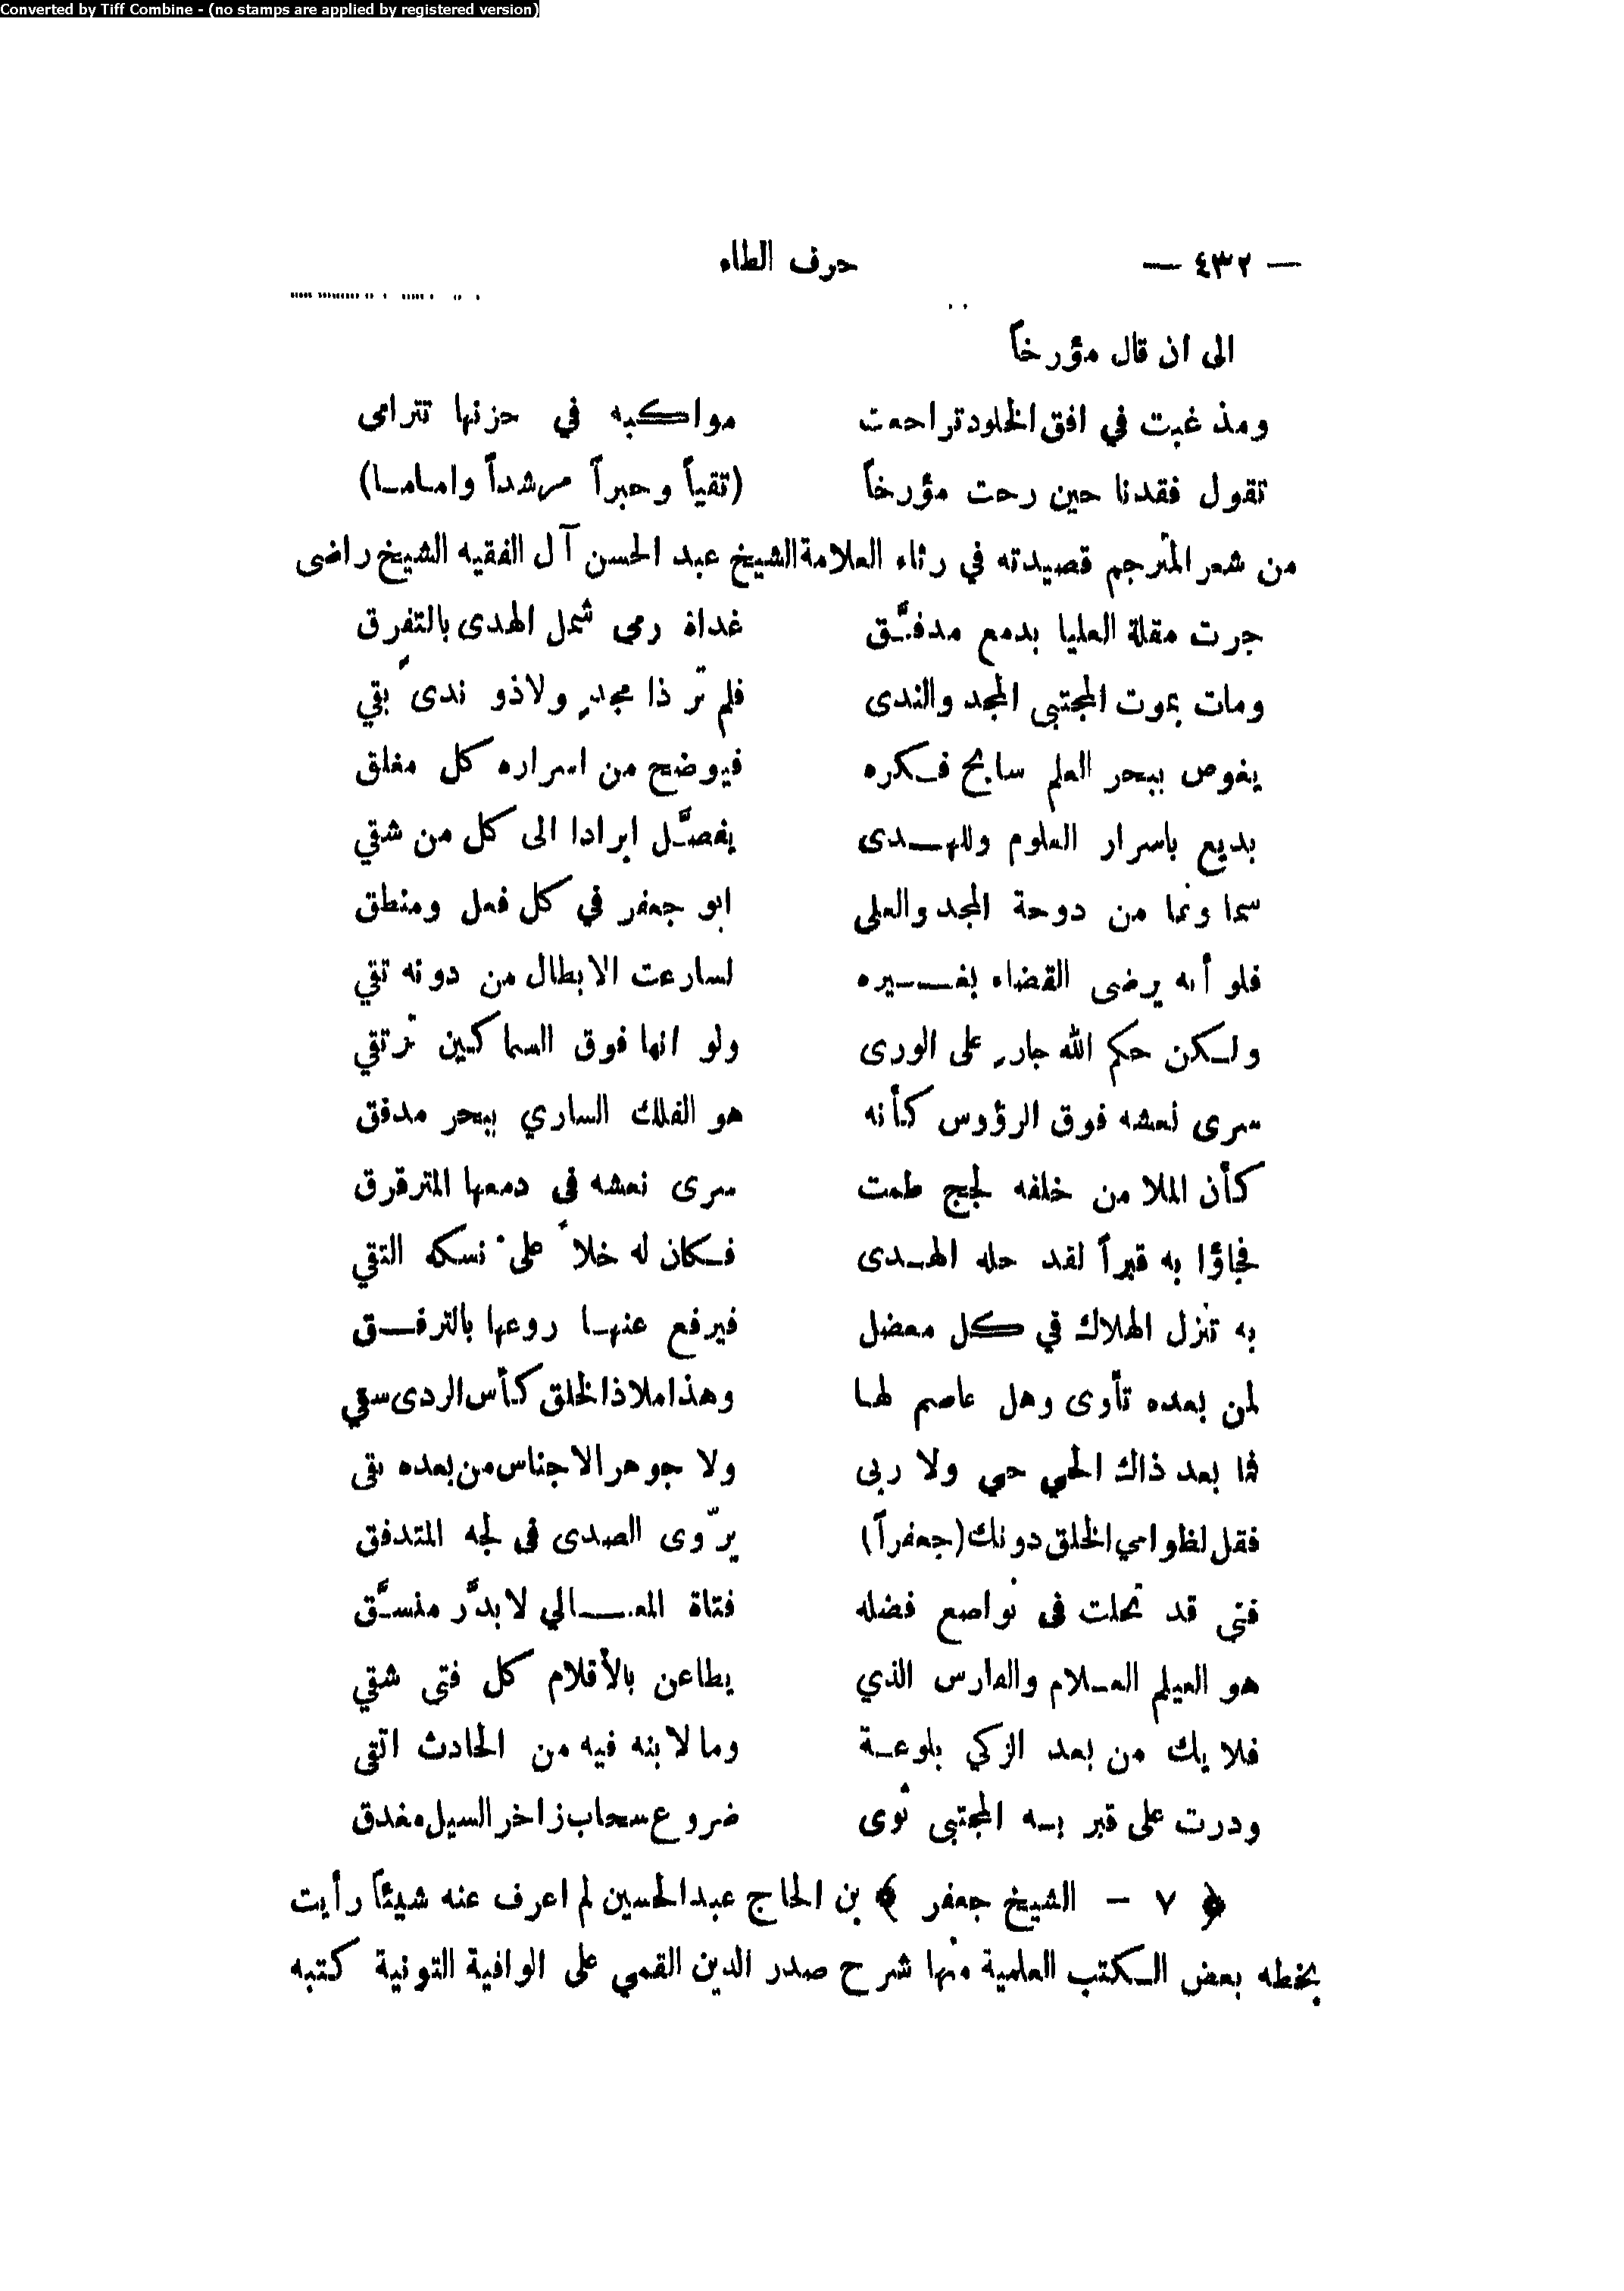 Converted by Tiff Combine - (no stamps are applied by registered version)
— ٤٣٢ — حرف الطاء
الى ان قال مؤرخاً
ومذ غبت في افق الخلود تراحمت مواكبه في حزنها تترامى
تقول فقدنا حين رحت مؤرخاً (تقياً وحبراً مرشداً وامامـا)
من شعر المترجم قصيدته في رثاء العلامة الشيخ عبد الحسن آل الفقيه الشيخ راضى
جرت مقلة العليا بدمع مدفـَّق غداة رمى شمل الهدى بالتفرق
ومات بموت المجتبى المجد والندى فلم تر ذا مجدٍ ولاذو ندىً بقي
يغوص ببحر العلم سابح فـكره فيوضح من اسراره كل مغلق
بديع باسرار العلوم وللهـدى يفصـَّل ايرادا الى كل من شقي
سما ونما من دوحة المجد والعلى ابو جعفر في كل فعل ومنطق
فلو أنه يرضى القضاء بغـيره لسارعت الابطال من دونه تقي
ولـكن حكم الله جارٍ على الورى ولو انها فوق السماكين ترتقي
سرى نعشه فوق الرؤوس كأنه هو الفلك الساري ببحر مدفق
كأن الملا من خلفه لجج طمت سرى نعشه فى دمعها المترقرق
فجاؤا به قبراً لقد حله الهـدى فـكان له خلاً على نسكه التقي
به تنزل الهلاك في كل معضل فيرفع عنهـا روعها بالترفـق
لمن بعده تأوى وهل عاصم لها وهذا ملاذ الخلق كأس الردى سقي
فما بعد ذاك الحي حي ولا ربى ولا جوهر الاجناس من بعده بقى
فقل لظوامي الخلق دونك (جعفراً) يرّوى الصدى فى لجه المتدفق
فتى قد تحلت فى نواصع فضله فتاة المعـالي لا بدَّر منسـَّق
هو العيلم العـلام والفارس الذي يطاعن بالأقلام كل فتى شقي
فلا يك من بعد الزكي بلوعـة وما لابنه فيه من الحادث اتقى
ودرت على قبر بـه المجتبى ثوى ضروع سحاب زاخر السيل مغدق
﴿ ٧ – الشيخ جعفر ﴾ بن الحاج عبدالحسين لم اعرف عنه شيئاً رأيت
بخطه بعض الـكتب العلمية منها شرح صدر الدين القمي على الوافية التونية كتبه